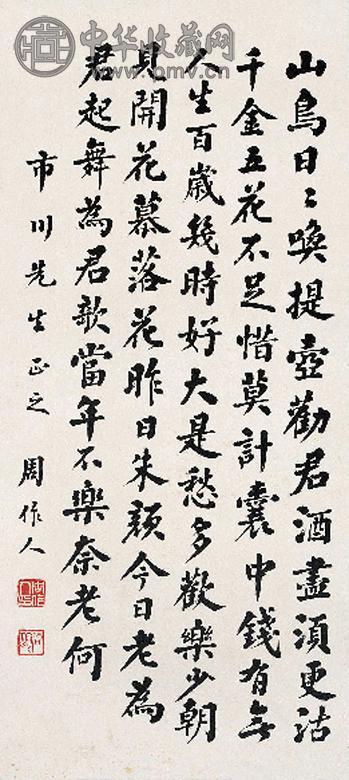 山鳥日〻喚提壺勸君酒盡須更沽
千金五花不足惜莫計囊中錢有無
人生百歲幾時好大是愁多歡樂少朝
見開花暮落花昨日朱顏今日老為
君起舞為君歌當年不樂奈老何
市川先生正之
周作人
中华收藏网
www.pmv.cn